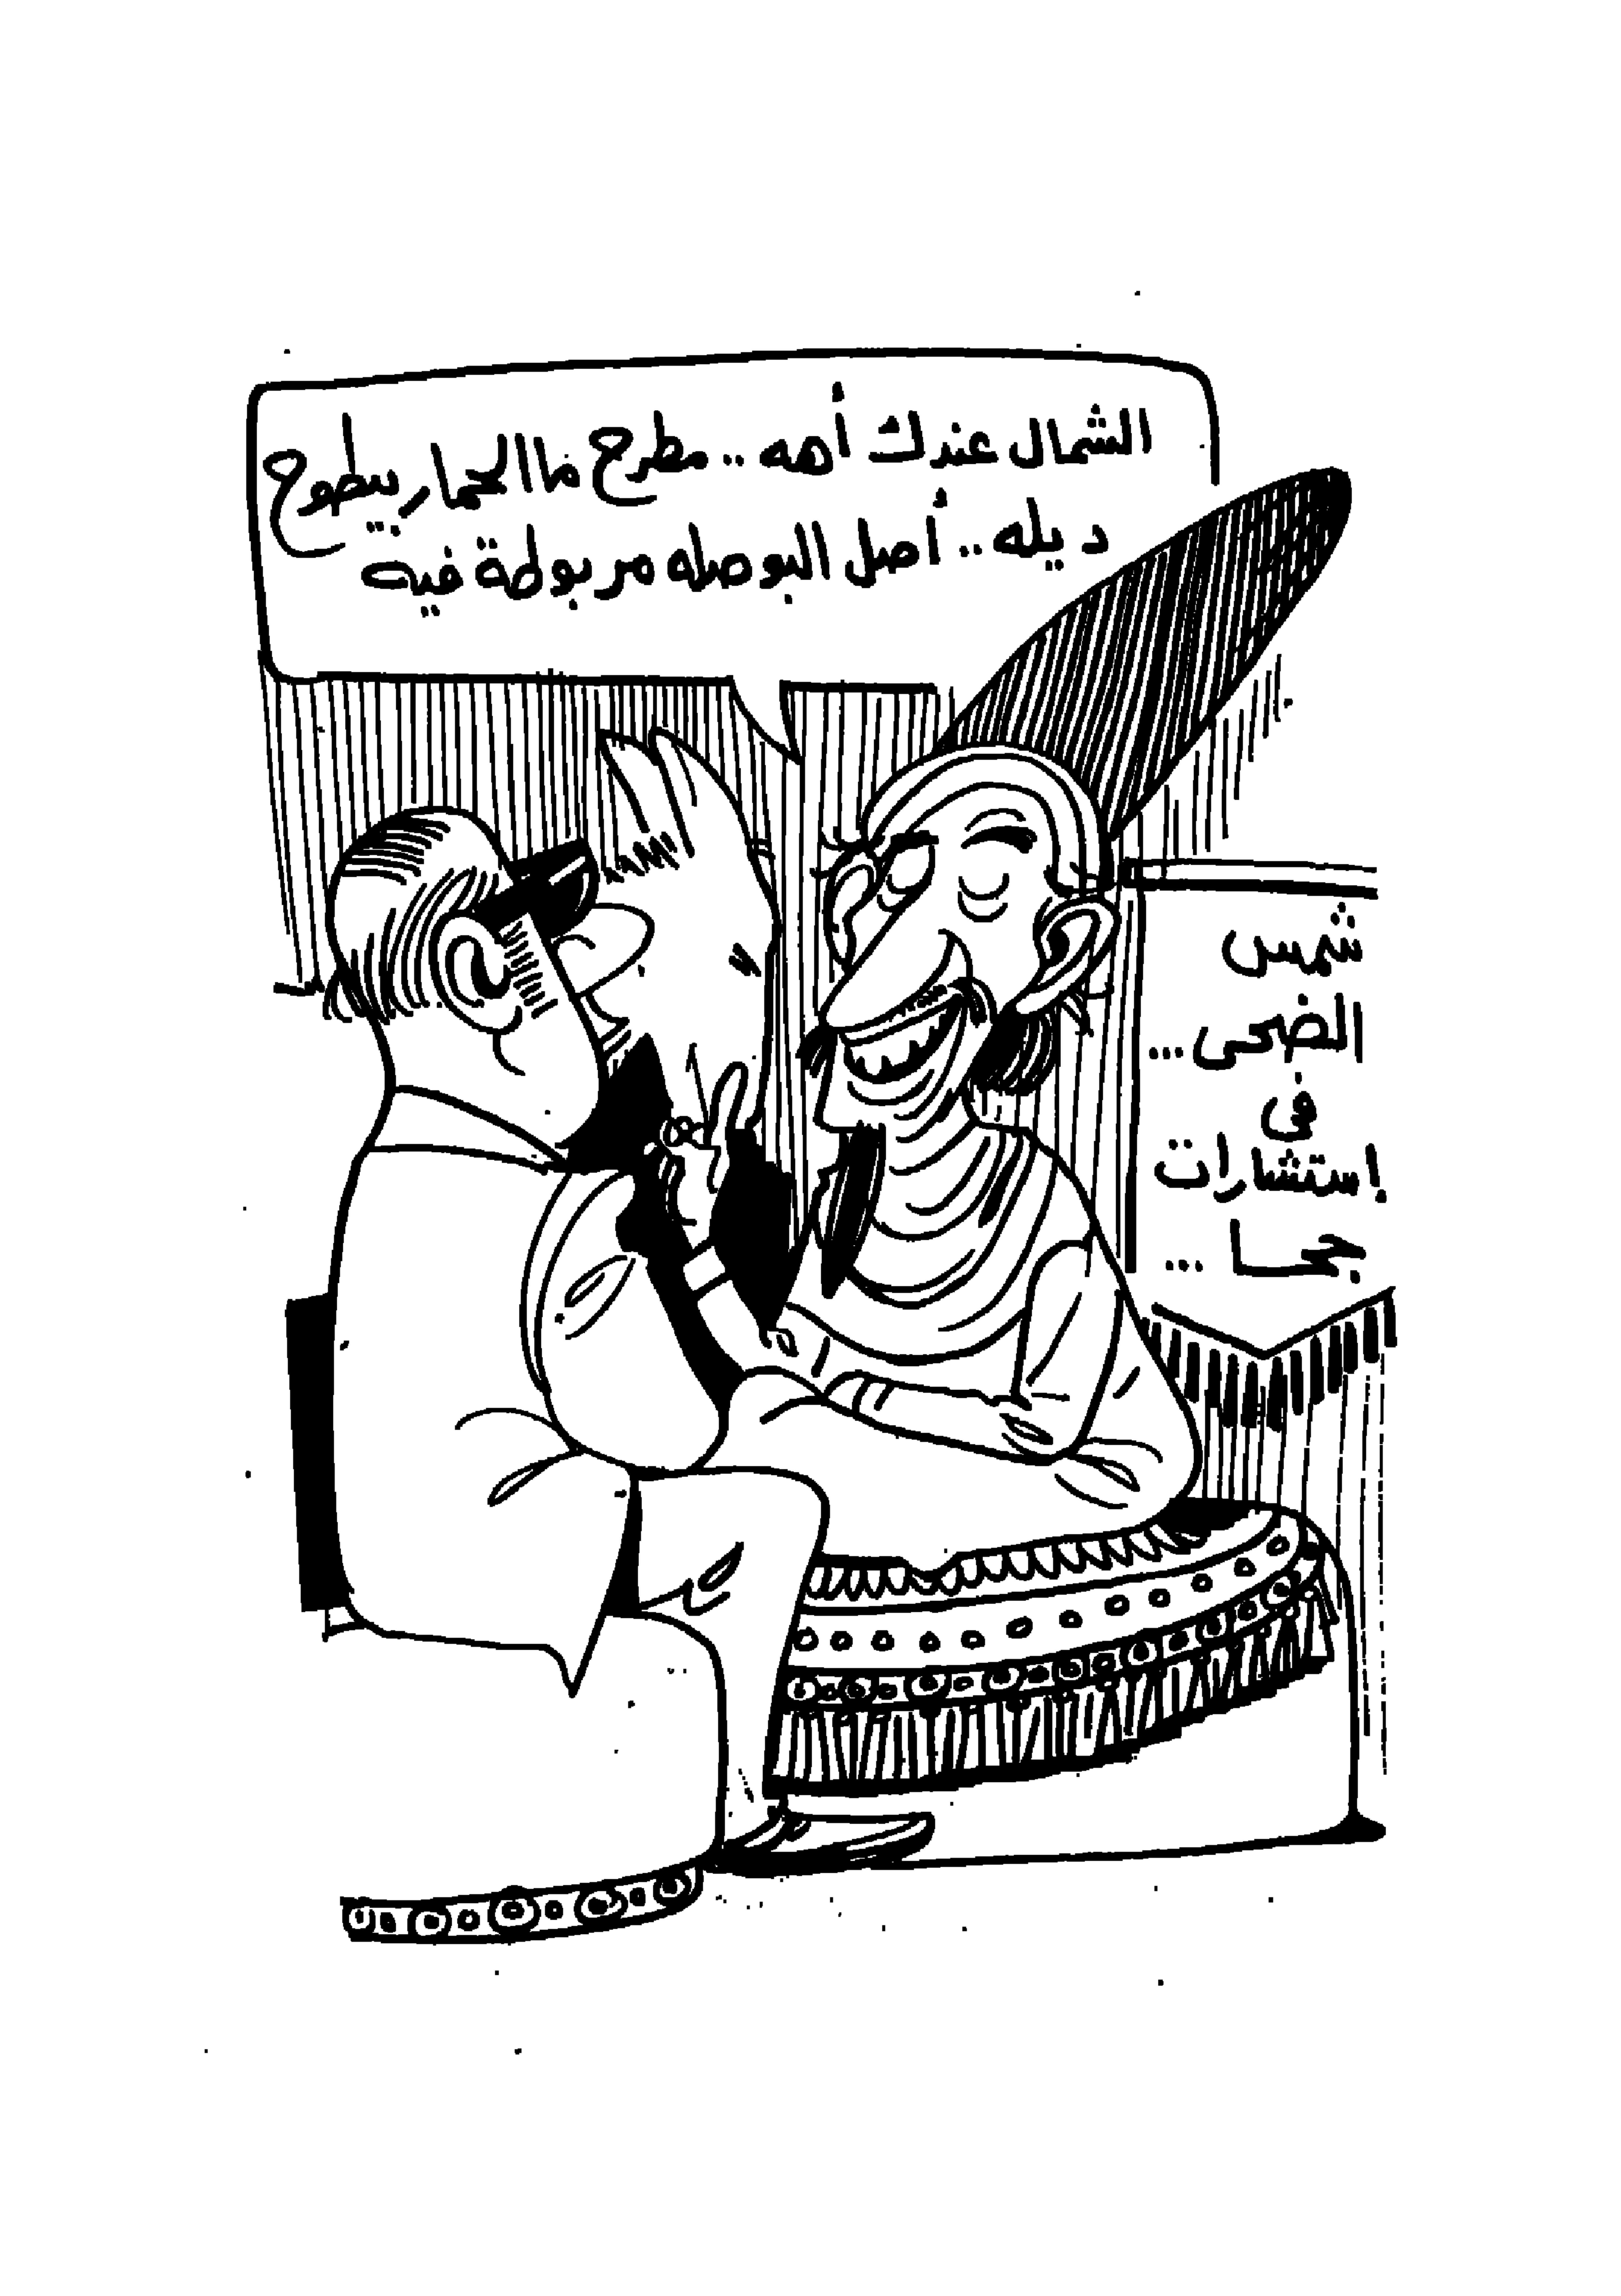 الشمال عندك أهه .. مطرح ما الحمار بيطوح
ديله .. أصل البوصله مربوطة فيه
شمس
الضحى ...
فى
إستشارات
جحا ...